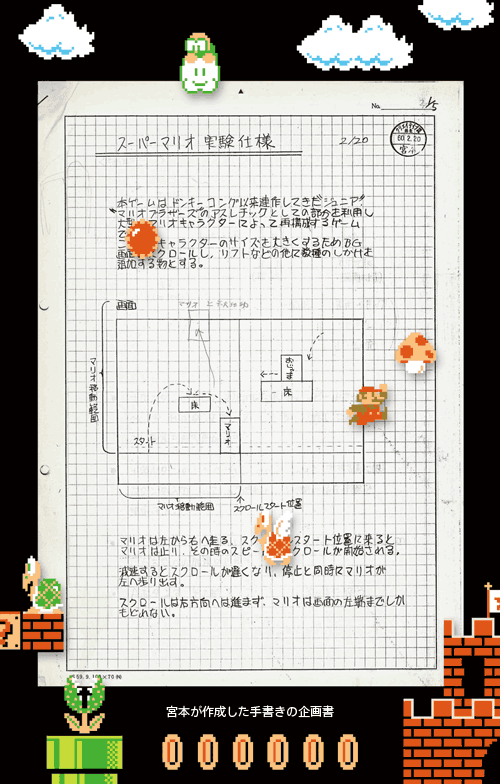 No. 2/5
60.2.20
スーパーマリオ実験仕様 2/20
本ゲームはドンキーコング以来連作してきた"ジュニア"
"マリオブラザーズ"のアスレチックとしての部分を利用し
大型マリオキャラクターによって再構成するゲーム
キャラクターのサイズを大きくするためBG
スクロールし、リフトなどの他に数種のしかけを
追加する物とする。
画面
マリオ
マリオ移動範囲
おじゃま
床
床
マリオ
スタート
マリオ移動範囲
スクロールスタート位置
マリオは左から右へ走る、スク スタート位置に来ると
マリオは止り、その時のスピー クロールが開始される。
減速するとスクロールが遅くなり、停止と同時にマリオが
左へ歩り出す。
スクロールは右方向へは進まず、マリオは画面の左端までしか
もどれない。
宮本が作成した手書きの企画書